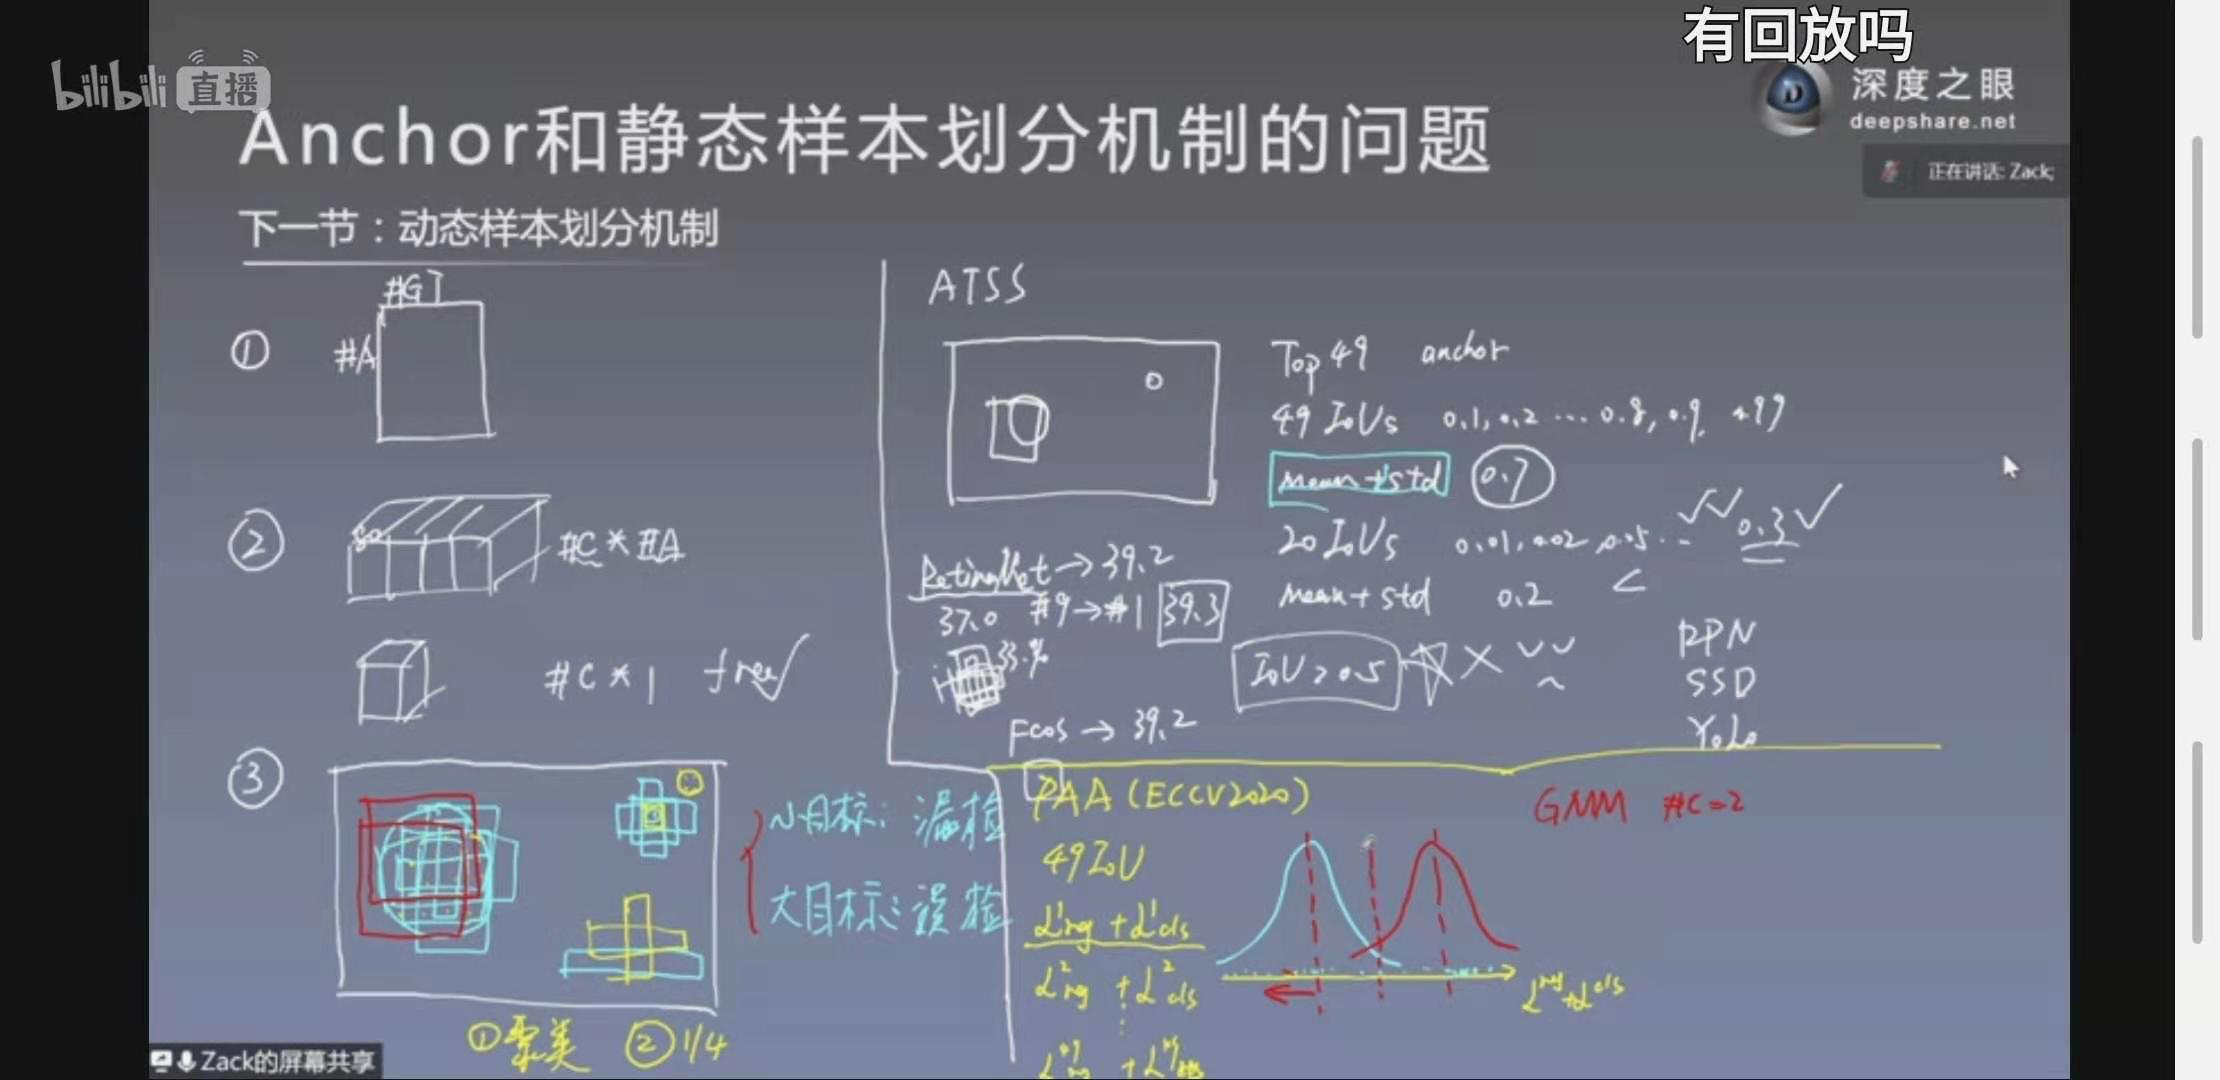 有回放吗
bilibili 直播
深度之眼
deepshare.net
正在讲话: Zack;
Anchor和静态样本划分机制的问题
下一节：动态样本划分机制
① #GT
#A
② #C * #A
#C * 1 free ✓
③
小目标：漏检
大目标：误检
① 聚类 ② 1/4
ATSS
Top 49 anchor
49 IoUs 0.1, 0.2 ... 0.8, 0.9
mean + std 0.7
20 IoUs 0.01, 0.02, 0.05 ... 0.3 ✓
mean + std 0.2 <
RetinaNet → 39.2
37.0 #9 → #1 39.3
IoU > 0.5
RPN
SSD
Yolo
Fcos → 39.2
PAA (ECCV2020)
49 IoU
L¹rg + L¹cls
L²rg + L²cls
⋮
GMM #C=2
Zack的屏幕共享